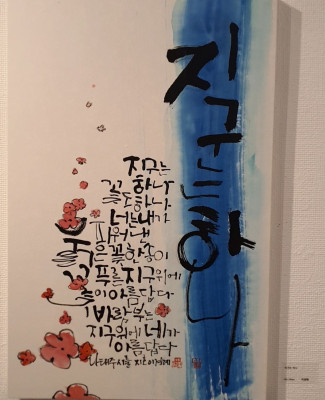 지구는 하나
지구는
하나
꽃도하나
너는내가
피워낸
붉은꽃한송이
푸른지구위에
꽃이아름답다
바람부는
지구위에네가
아름답다
나태주 시를